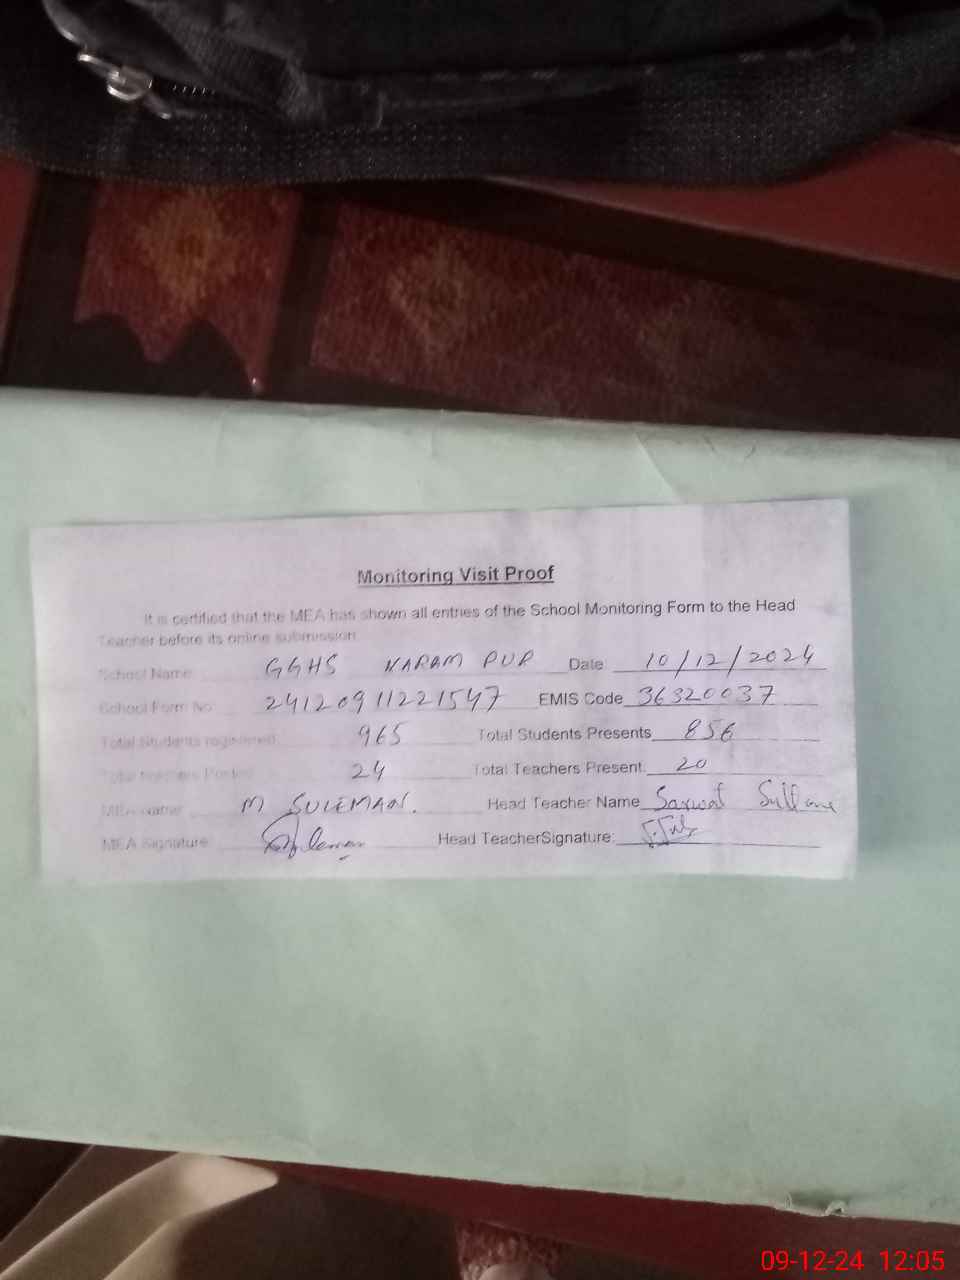 Monitoring Visit Proof
It is certified that the MEA has shown all entries of the School Monitoring Form to the Head
Teacher before its online submission
School Name GGHS KARAM PUR Date 10/12/2024
School Form No 24120911221547 EMIS Code 36320037
Total Students registered 965 Total Students Presents 856
Total teachers Posted 24 Total Teachers Present. 20
MEA Name M SULEMAN. Head Teacher Name Sarwat
MEA Signature Head TeacherSignature:
09-12-24 12:05